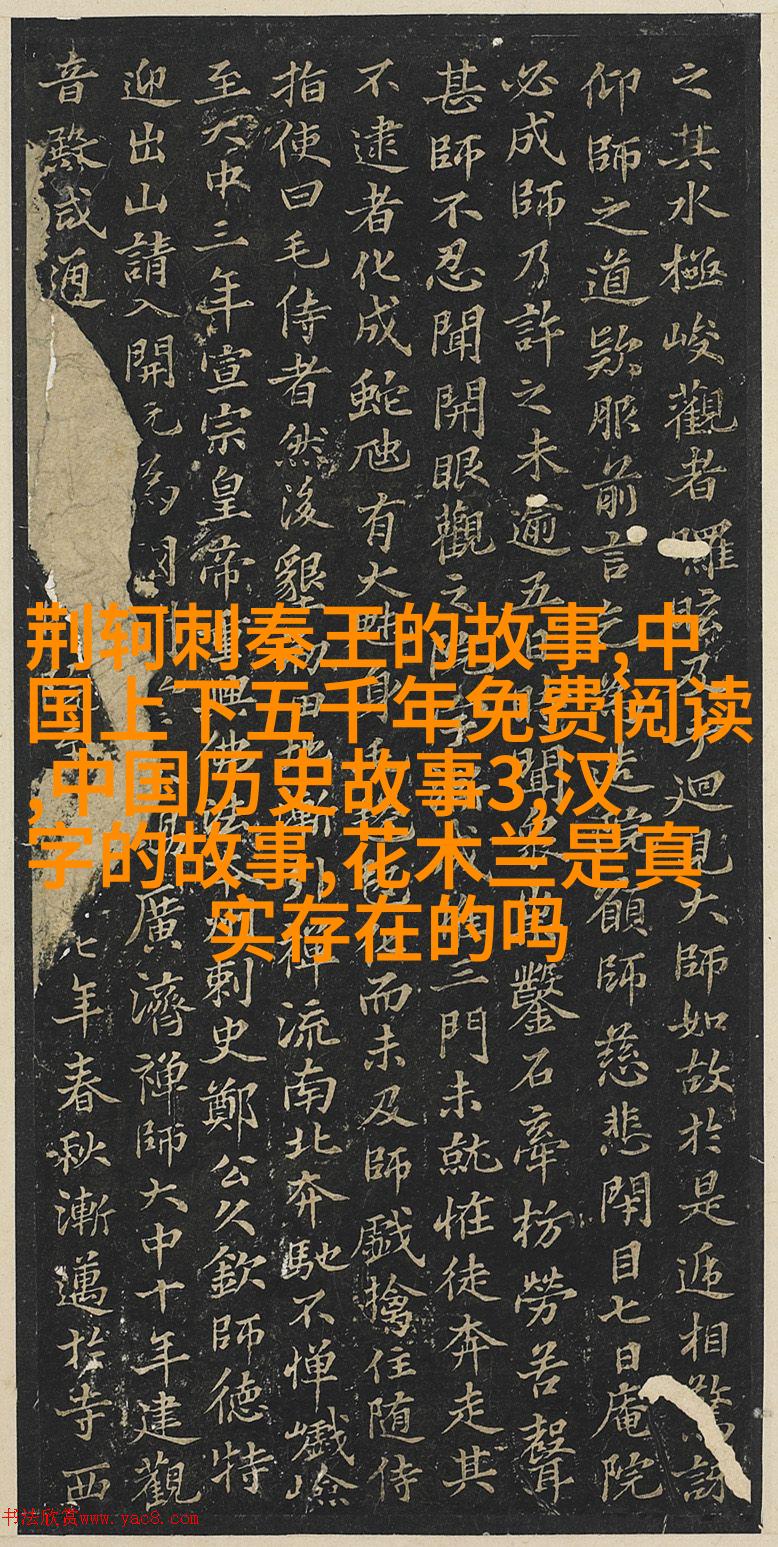 之其水極峻觀者眩迴見大師如故於是遞相驚訝
仰師之道欵服前言願師慈悲閉目七日庵院
必成師乃許之未逾五日聞鑿石牽枋勞苦聲
甚師不忍聞開眼觀之三門未就恠徒奔走其
不逮者化成蛇虺有大而未及師戲擒住随侍
指使曰毛侍者然後墾禪流南北奔馳不憚巇嶮
至大中三年宣宗皇帝興佛刺史鄭公久欽師德特
迎出山請入開元為廣濟禪師大中十年建觀
音殿咸通七年春秋漸邁於寺西
荆轲刺秦王的故事,中
国上下五千年免费阅读
,中国历史故事3,汉
字的故事,花木兰是真
实存在的吗
书法欣赏www.yac8.com